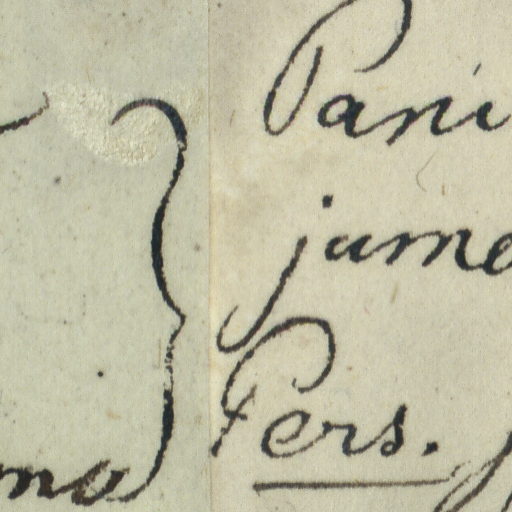 Pani
jume
Pers.
mo